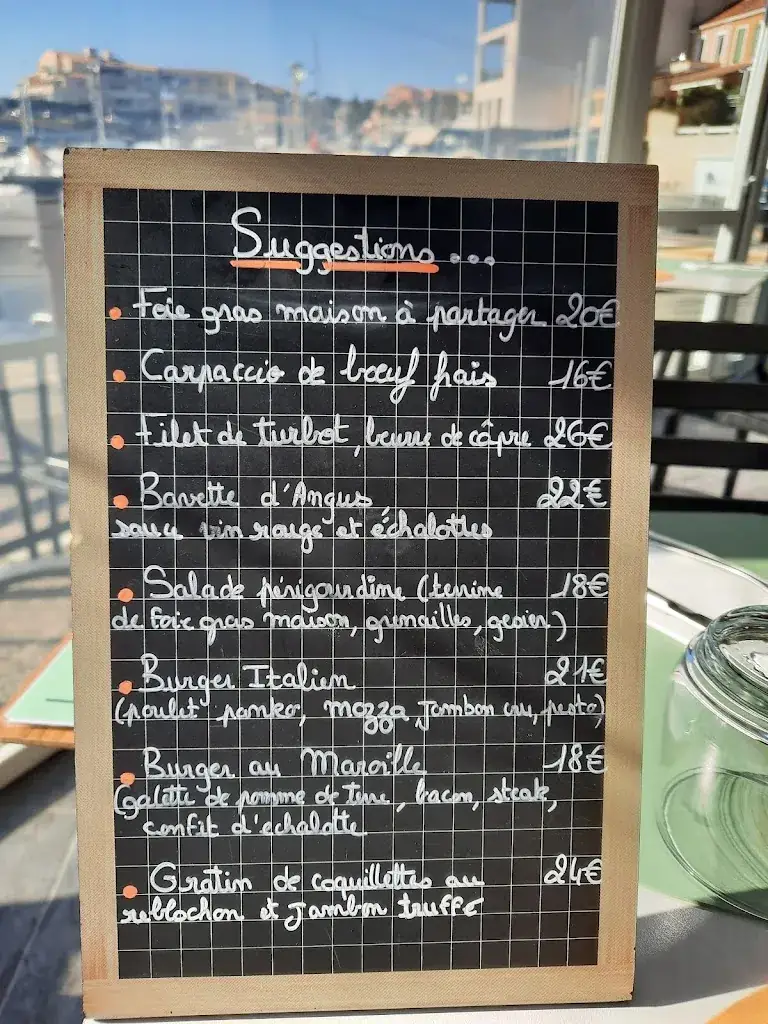 Suggestions...
Foie gras maison à partager 20€
Carpaccio de bœuf frais 16€
Filet de turbot, beurre de câpre 26€
Bavette d'Angus, 22€
sauce vin rouge et échalottes
Salade périgourdine (terrine 18€
de foie gras maison, grenailles, gesier)
Burger Italien 21€
(poulet panko, mozza, jambon cru, pesto)
Burger au Maroille 18€
(galette de pomme de terre, bacon, steak,
confit d'echalotte
Gratin de coquillettes au 24€
reblochon et jambon truffé